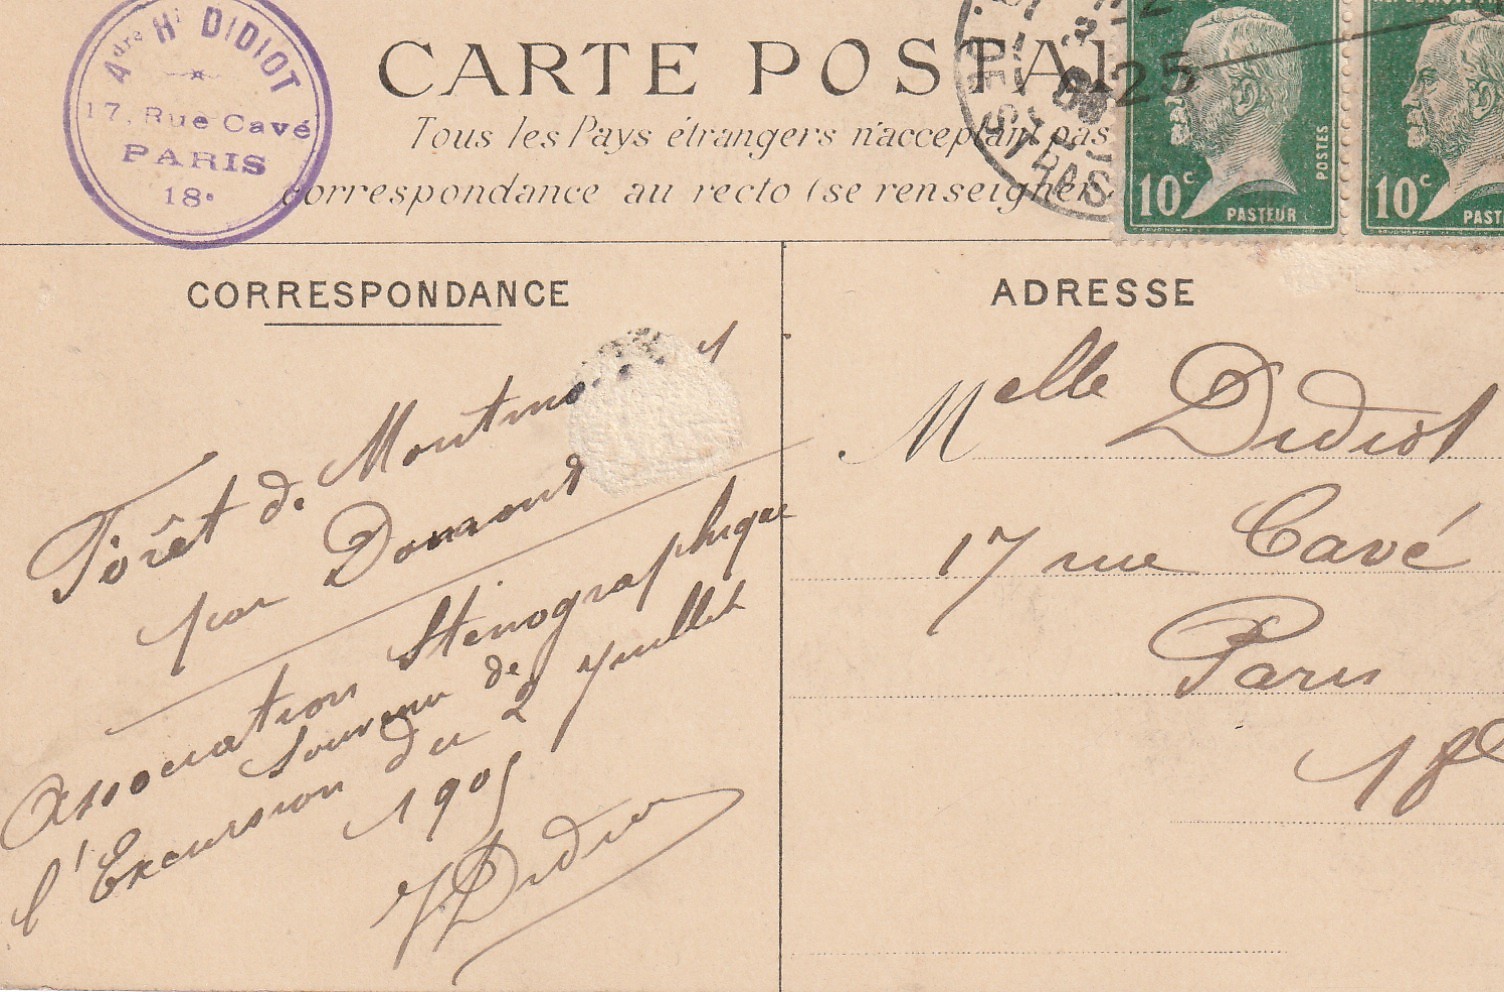 Adre Hi DIDIOT
17, Rue Cavé
PARIS
18e
CARTE POSTAL
Tous les Pays étrangers n'acceptant pas
correspondance au recto (se renseigner
25
10c
POSTES
PASTEUR
10c
PAST
CORRESPONDANCE
Forêt de
par
Association Sténographique
Souvenir de
l'Excursion du 2 Juillet
1905
Didiot
ADRESSE
Melle Didiot
17 rue Cavé
Paris
18e